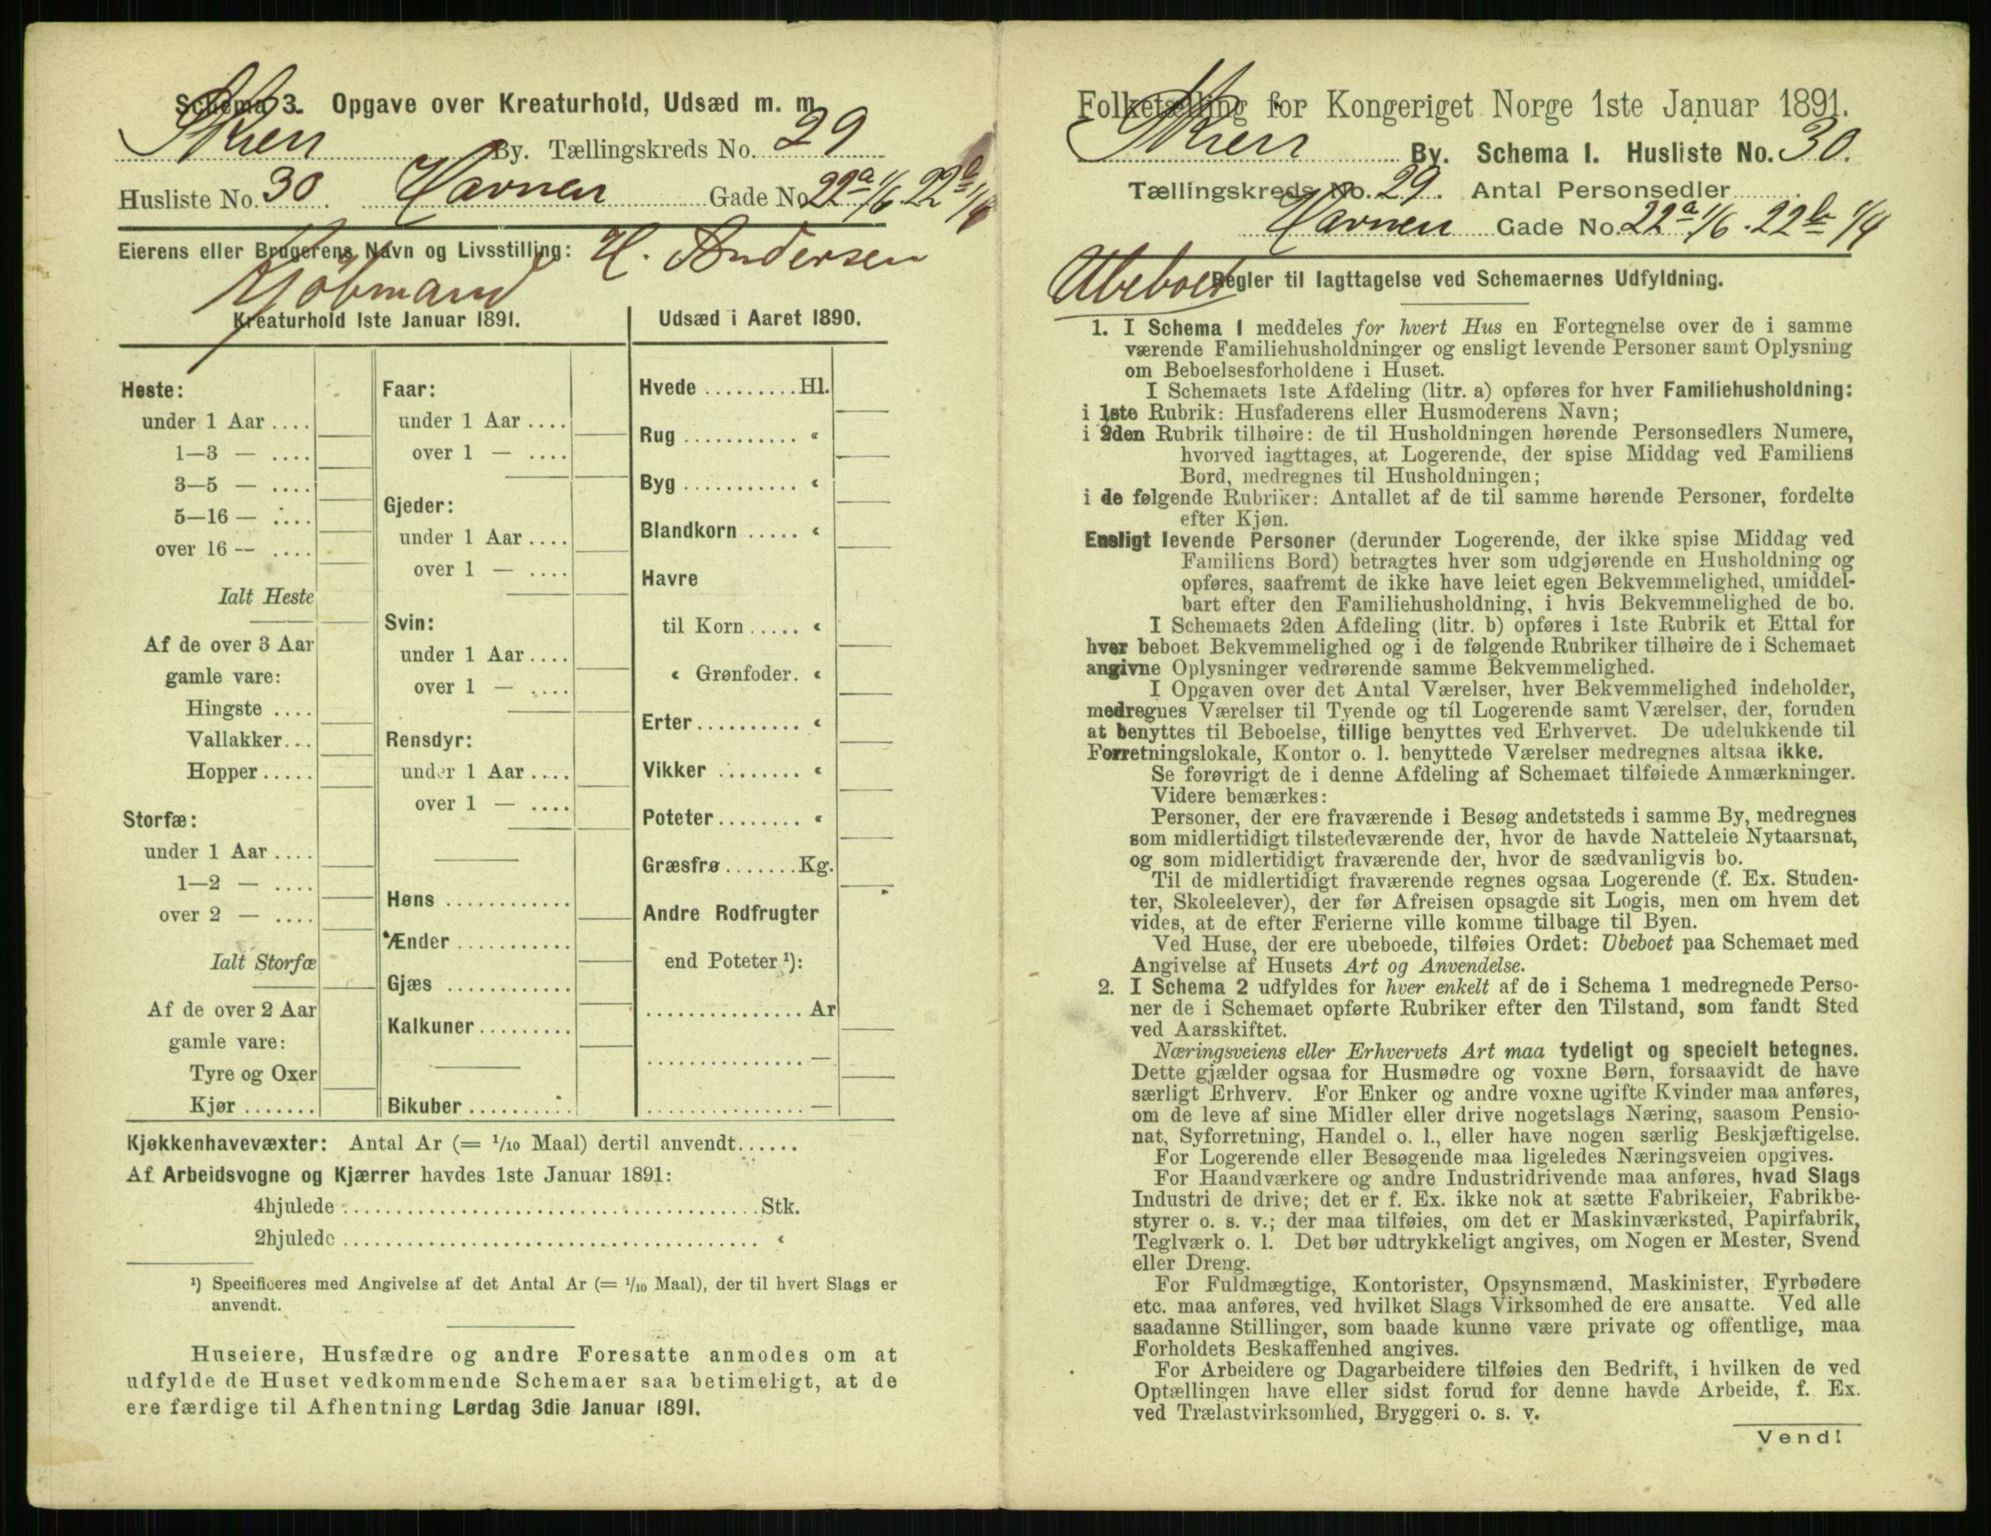 Schema 3. Opgave over Kreaturhold, Udsæd m. m.
Skien By. Tællingskreds No. 29
Husliste No. 30. Havnen Gade No. 22a 1/6. 22b 1/4
Eierens eller Brugerens Navn og Livsstilling: H. Andersen
Kjøbmand
Kreaturhold 1ste Januar 1891.
Heste:
under 1 Aar ....
1—3 — ....
3—5 — ....
5—16 — ....
over 16 — ....
Ialt Heste
Af de over 3 Aar
gamle vare:
Hingste ....
Vallakker...
Hopper.....
Storfæ:
under 1 Aar ....
1—2 — ....
over 2 — ....
Ialt Storfæ
Af de over 2 Aar
gamle vare:
Tyre og Oxer
Kjør .......
Faar:
under 1 Aar ....
over 1 — ....
Gjeder:
under 1 Aar ....
over 1 — ....
Svin:
under 1 Aar ....
over 1 — ....
Rensdyr:
under 1 Aar ....
over 1 — ....
Høns ............
Ænder ...........
Gjæs ............
Kalkuner.........
Bikuber ..........
Udsæd i Aaret 1890.
Hvede .........Hl.
Rug ........... «
Byg ........... «
Blandkorn ..... «
Havre
til Korn ..... «
« Grønfoder. «
Erter.......... «
Vikker ........ «
Poteter........ «
Græsfrø.......Kg.
Andre Rodfrugter
end Poteter ¹):
............... Ar
............... —
............... —
Kjøkkenhavevæxter: Antal Ar (= 1/10 Maal) dertil anvendt......
Af Arbeidsvogne og Kjærrer havdes 1ste Januar 1891:
4hjulede .......................................Stk.
2hjulede ....................................... «
¹) Specificeres med Angivelse af det Antal Ar (= 1/10 Maal), der til hvert Slags er
anvendt.
Huseiere, Husfædre og andre Foresatte anmodes om at
udfylde de Huset vedkommende Schemaer saa betimeligt, at de
ere færdige til Afhentning Lørdag 3die Januar 1891.
Folketælling for Kongeriget Norge 1ste Januar 1891.
Skien By. Schema I. Husliste No. 30.
Tællingskreds No. 29. Antal Personsedler........
Havnen Gade No. 22a 1/6. 22b 1/4
Ubeboet
Regler til Iagttagelse ved Schemaernes Udfyldning.
1. I Schema I meddeles for hvert Hus en Fortegnelse over de i samme
værende Familiehusholdninger og ensligt levende Personer samt Oplysning
om Beboelsesforholdene i Huset.
I Schemaets 1ste Afdeling (litr. a) opføres for hver Familiehusholdning:
i 1ste Rubrik: Husfaderens eller Husmoderens Navn;
i 2den Rubrik tilhøire: de til Husholdningen hørende Personsedlers Numere,
hvorved iagttages, at Logerende, der spise Middag ved Familiens
Bord, medregnes til Husholdningen;
i de følgende Rubriker: Antallet af de til samme hørende Personer, fordelte
efter Kjøn.
Ensligt levende Personer (derunder Logerende, der ikke spise Middag ved
Familiens Bord) betragtes hver som udgjørende en Husholdning og
opføres, saafremt de ikke have leiet egen Bekvemmelighed, umiddel-
bart efter den Familiehusholdning, i hvis Bekvemmelighed de bo.
I Schemaets 2den Afdeling (litr. b) opføres i 1ste Rubrik et Ettal for
hver beboet Bekvemmelighed og i de følgende Rubriker tilhøire de i Schemaet
angivne Oplysninger vedrørende samme Bekvemmelighed.
I Opgaven over det Antal Værelser, hver Bekvemmelighed indeholder,
medregnes Værelser til Tyende og til Logerende samt Værelser, der, foruden
at benyttes til Beboelse, tillige benyttes ved Erhvervet. De udelukkende til
Forretningslokale, Kontor o. l. benyttede Værelser medregnes altsaa ikke.
Se forøvrigt de i denne Afdeling af Schemaet tilføiede Anmærkninger.
Videre bemærkes:
Personer, der ere fraværende i Besøg andetsteds i samme By, medregnes
som midlertidigt tilstedeværende der, hvor de havde Natteleie Nytaarsnat,
og som midlertidigt fraværende der, hvor de sædvanligvis bo.
Til de midlertidigt fraværende regnes ogsaa Logerende (f. Ex. Studen-
ter, Skoleelever), der før Afreisen opsagde sit Logis, men om hvem det
vides, at de efter Ferierne ville komme tilbage til Byen.
Ved Huse, der ere ubeboede, tilføies Ordet: Ubeboet paa Schemaet med
Angivelse af Husets Art og Anvendelse.
2. I Schema 2 udfyldes for hver enkelt af de i Schema 1 medregnede Perso-
ner de i Schemaet opførte Rubriker efter den Tilstand, som fandt Sted
ved Aarsskiftet.
Næringsveiens eller Erhvervets Art maa tydeligt og specielt betegnes.
Dette gjælder ogsaa for Husmødre og voxne Børn, forsaavidt de have
særligt Erhverv. For Enker og andre voxne ugifte Kvinder maa anføres,
om de leve af sine Midler eller drive nogetslags Næring, saasom Pensio-
nat, Syforretning, Handel o. l., eller have nogen særlig Beskjæftigelse.
For Logerende eller Besøgende maa ligeledes Næringsveien opgives.
For Haandværkere og andre Industridrivende maa anføres, hvad Slags
Industri de drive; det er f. Ex. ikke nok at sætte Fabrikeier, Fabrikbe-
styrer o. s. v.; der maa tilføies, om det er Maskinværksted, Papirfabrik,
Teglværk o. l. Det bør udtrykkeligt angives, om Nogen er Mester, Svend
eller Dreng.
For Fuldmægtige, Kontorister, Opsynsmænd, Maskinister, Fyrbødere
etc. maa anføres, ved hvilket Slags Virksomhed de ere ansatte. Ved alle
saadanne Stillinger, som baade kunne være private og offentlige, maa
Forholdets Beskaffenhed angives.
For Arbeidere og Dagarbeidere tilføies den Bedrift, i hvilken de ved
Optællingen have eller sidst forud for denne havde Arbeide, f. Ex.
ved Trælastvirksomhed, Bryggeri o. s. v.
Vend!